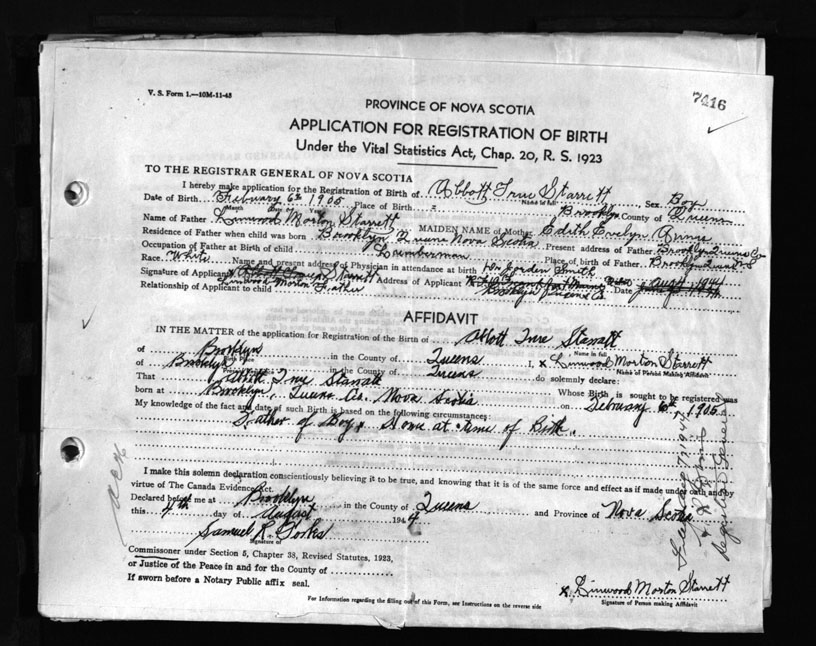 V. S. Form 1.—10M-11-43
7416
PROVINCE OF NOVA SCOTIA
APPLICATION FOR REGISTRATION OF BIRTH
Under the Vital Statistics Act, Chap. 20, R. S. 1923
TO THE REGISTRAR GENERAL OF NOVA SCOTIA
I hereby make application for the Registration of Birth of Abbott True Starrett Sex Boy
Name in full
Date of Birth February 6th 1905 Place of Birth Brooklyn County of Queens
Name of Father Linwood Morton Starrett MAIDEN NAME of Mother Edith Evelyn
Residence of Father when child was born Brooklyn Queens Nova Scotia Present address of Father Brooklyn Queens Co
Occupation of Father at Birth of child Lumberman Place of birth of Father Brooklyn Queens
Race White Name and present address of Physician in attendance at birth Dr. Jorden Smith
Signature of Applicant Address of Applicant Date
Relationship of Applicant to child Linwood Morton Father Brooklyn Queens Co.
AFFIDAVIT
IN THE MATTER of the application for Registration of the Birth of Abbott True Starratt
Name in full
of Brooklyn in the County of Queens I, x Linwood Morton Starrett
Name of Person Making Affidavit
of Brooklyn in the County of Queens do solemnly declare:
That Abbott True Starratt Whose Birth is sought to be registered was
born at Brooklyn, Queens Co. Nova Scotia on February 6th 1905
My knowledge of the fact and date of such Birth is based on the following circumstances:
Father of Boy. Home at time of Birth.
I make this solemn declaration conscientiously believing it to be true, and knowing that it is of the same force and effect as if made under oath and by
virtue of The Canada Evidence Act.
Declared before me at Brooklyn in the County of Queens and Province of Nova Scotia
this 4th day of August 1944
Samuel R.
Signature of
Commissioner under Section 5, Chapter 38, Revised Statutes, 1923,
or Justice of the Peace in and for the County of
If sworn before a Notary Public affix seal.
x Linwood Morton Starrett
Signature of Person making Affidavit
For Information regarding the filling out of this Form, see Instructions on the reverse side